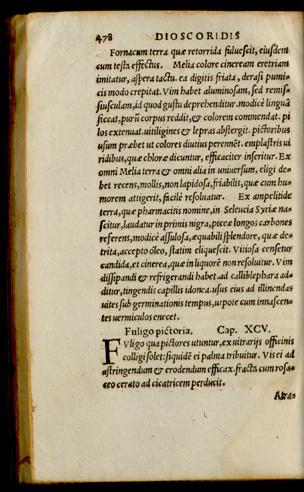 478 DIOSCORIDIS
Fornacum terra quæ retorrida siduescit, eiusdem
cum testa effectus. Melia colore cineream eretriam
imitatur, aspera tactu. ea digitis friata, derasi pumi-
cis modo crepitat. Vim habet aluminosam, sed remis-
siusculam, id quod gustu deprehenditur. modicè linguã
siccat, purũ corpus reddit, & colorem commendat. pi
los extenuat. uitiligines & lepras abstergit. pictoribus
usum præbet ut colores diutius perennẽt. emplastris ui
ridibus, quæ chloræ dicuntur, efficaciter inseritur. Ex
omni Melia terra & omni alia in uniuersum, eligi de-
bet recens, mollis, non lapidosa, friabilis, quæ cum hu-
morem attigerit, facilè resoluatur. Ex ampelitide
terra, quæ pharmacitis nomine, in Seleucia Syriæ na-
scitur, laudatur in primis nigra, piceæ longos carbones
referens, modicè assulosa, æquabili splendore, quæ de-
trita, accepto óleo, statim eliquescit. Vitiosa censetur
candida, et cinerea, quæ in liquorẽ non resoluitur. Vim
dissipandi & refrigerandi habet. ad calliblephara ad-
ditur, tingendis capillis idonea. usus eius ad illinendas
uites sub germinationis tempus, utpote cum innascen-
tes uermiculos enecet.
Fuligo pictoria. Cap. XCV.
FVligo qua pictores utuntur, ex uitrarijs officinis
colligi solet: siquidẽ ei palma tribuitur. Vis ei ad
astringendum & erodendum efficax. fracta cum rosa-
ceo cerato ad cicatricem perducit.
Atra-